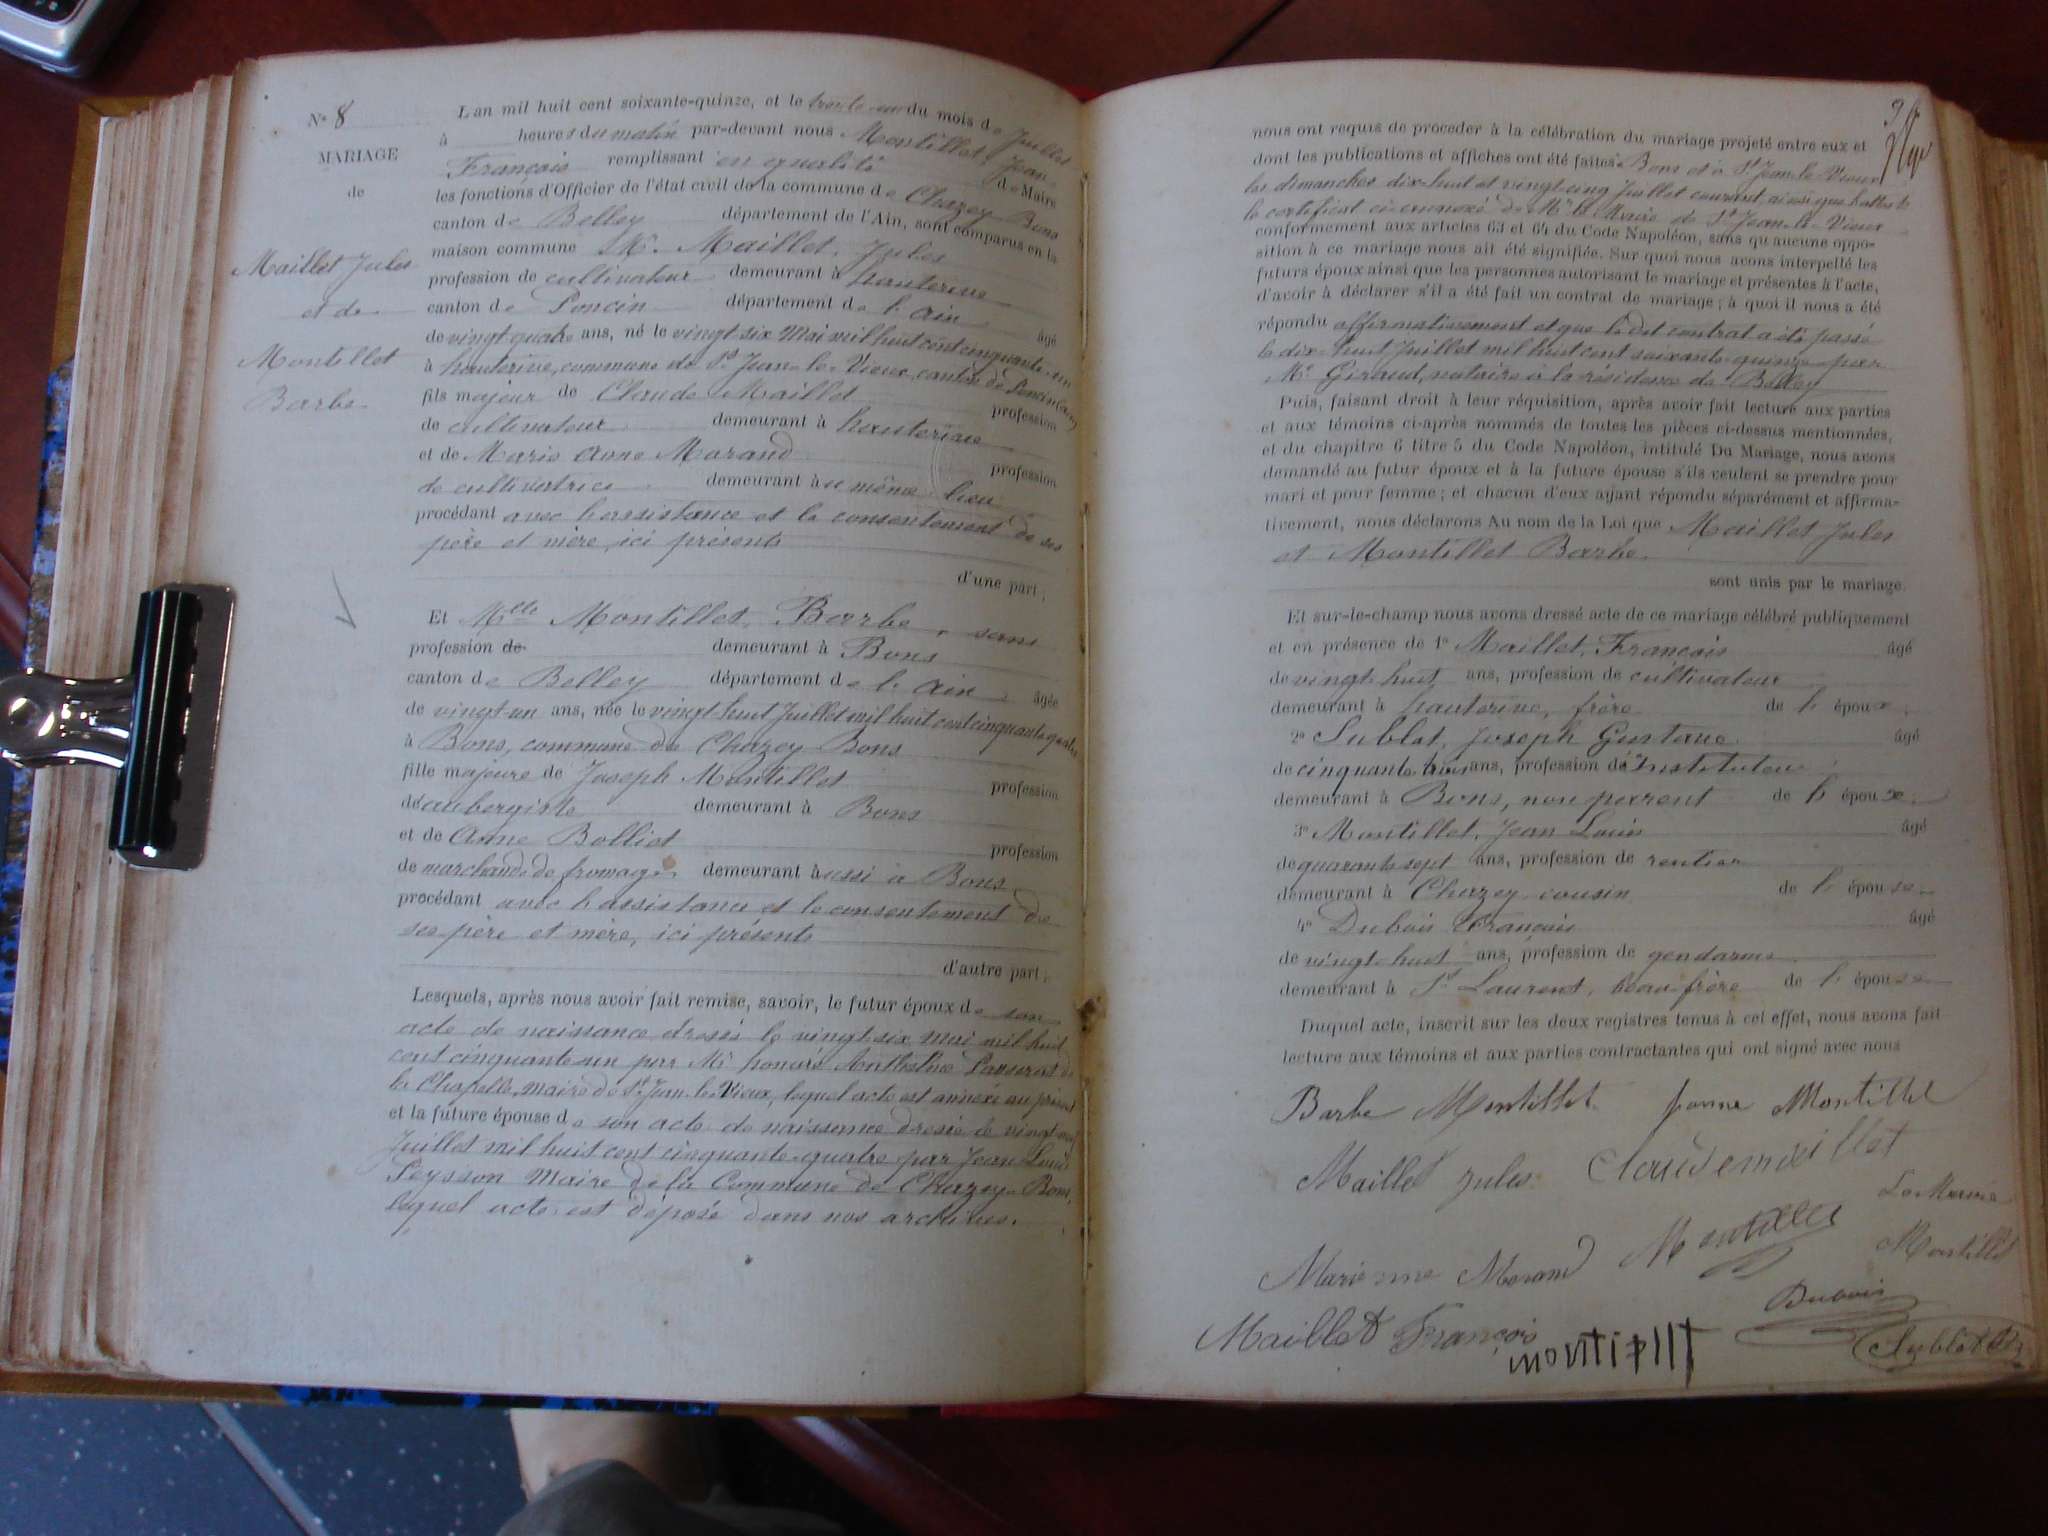 N° 8
MARIAGE
de
Maillet Jules
et de
Montillet
Barbe
L'an mil huit cent soixante-quinze, et le trente-un du mois de Juillet
à heures du matin par-devant nous Montillet, Jean-
François remplissant en qualité de Maire
les fonctions d'Officier de l'état civil de la commune de Chazey Bons
canton de Belley département de l'Ain, sont comparus en la
maison commune Mr. Maillet, Jules
profession de cultivateur demeurant à hauterive
canton de Poncin département de l'Ain âgé
de vingt quatre ans, né le vingt-six Mai mil huit cent cinquante-un
à hauterive, commune de St Jean-le-Vieux, canton de Poncin (Ain)
fils majeur de Claude Maillet profession
de cultivateur demeurant à hauterive
et de Marie Anne Morand profession
de cultivatrice demeurant au même lieu
procédant avec l'assistance et le consentement de ses
père et mère, ici présents
d'une part,
Et Mlle Montillet, Barbe, sans
profession de demeurant à Bons
canton de Belley département de l'Ain, âgée
de vingt-un ans, née le vingt huit Juillet mil huit cent cinquante quatre
à Bons, commune de Chazey Bons
fille majeure de Joseph Montillet profession
d'aubergiste demeurant à Bons
et de Anne Bolliet profession
de marchande de fromages, demeurant aussi à Bons
procédant avec l'assistance et le consentement de
ses père et mère, ici présents
d'autre part,
Lesquels, après nous avoir fait remise, savoir, le futur époux de son
acte de naissance dressé le vingt-six mai mil huit
cent cinquante-un par Mr honoré Anthelme Passerat de
la Chapelle, maire de St Jean-le-Vieux, lequel acte est annexé au présent
et la future épouse de son acte de naissance dressé le vingt-neuf
Juillet mil huit cent cinquante-quatre par Jean-Louis
Peysson Maire de la Commune de Chazey-Bons,
lequel acte est déposé dans nos archives.
nous ont requis de proceder à la célébration du mariage projeté entre eux et
dont les publications et affiches ont été faites à Bons et à St Jean-le-Vieux
les dimanches dix-huit et vingt-cinq Juillet courant ainsi que l'atteste
le certificat ci-annexé de Mr le Maire de St Jean-le-Vieux
conformement aux articles 63 et 64 du Code Napoléon, sans qu'aucune oppo-
sition à ce mariage nous ait été signifiée. Sur quoi nous avons interpellé les
futurs époux ainsi que les personnes autorisant le mariage et présentes à l'acte,
d'avoir à déclarer s'il a été fait un contrat de mariage; à quoi il nous a été
répondu affirmativement et que le dit contrat a été passé
le dix-huit Juillet mil huit cent soixante-quinze par
Me Giraud, notaire à la résidence de Belley
Puis, faisant droit à leur réquisition, après avoir fait lecture aux parties
et aux témoins ci-après nommés de toutes les pièces ci-dessus mentionnées,
et du chapitre 6 titre 5 du Code Napoléon, intitulé Du Mariage, nous avons
demandé au futur époux et à la future épouse s'ils veulent se prendre pour
mari et pour femme; et chacun d'eux ayant répondu séparément et affirma-
tivement, nous déclarons Au nom de la Loi que Maillet Jules
et Montillet Barbe
sont unis par le mariage.
Et sur-le-champ nous avons dressé acte de ce mariage célébré publiquement
et en présence de 1° Maillet, François âgé
de vingt-huit ans, profession de cultivateur
demeurant à hauterive, frère de l'époux,
2° Sublet, Joseph Gustave âgé
de cinquante trois ans, profession de Instituteur
demeurant à Bons, non parent de l'époux,
3° Montillet, Jean Louis âgé
de quarante sept ans, profession de rentier
demeurant à Chazey cousin de l'épouse
4° Dubois François âgé
de vingt-huit ans, profession de gendarme
demeurant à St Laurent, beau-frère de l'épouse
Duquel acte, inscrit sur les deux registres tenus à cet effet, nous avons fait
lecture aux témoins et aux parties contractantes qui ont signé avec nous
Barbe Montillet Jeanne Montillet
Maillet Jules Claude maillet
Le Maire
Marienne Morand Montillet Montillet
Dubois
Maillet François montillt Sublet